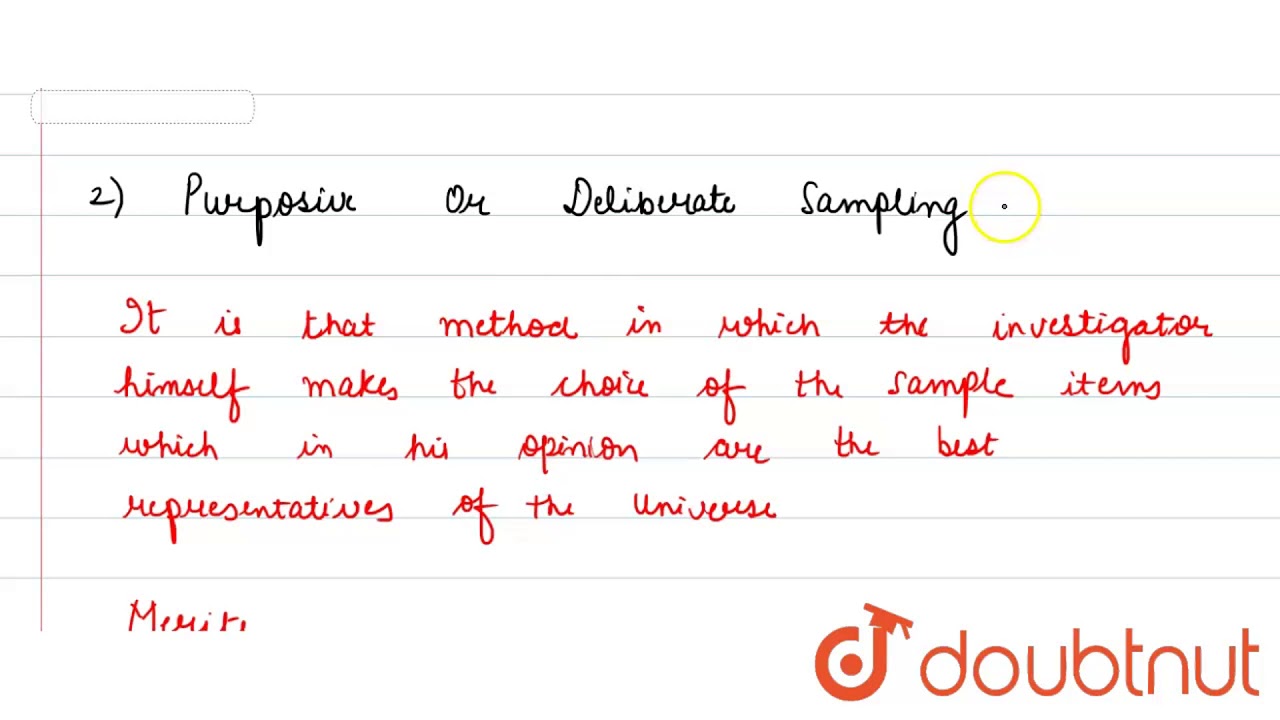 2) Purposive Or Deliberate Sampling
It is that method in which the investigator
himself makes the choice of the sample items
which in his opinion are the best
representatives of the universe
Merits
doubtnut